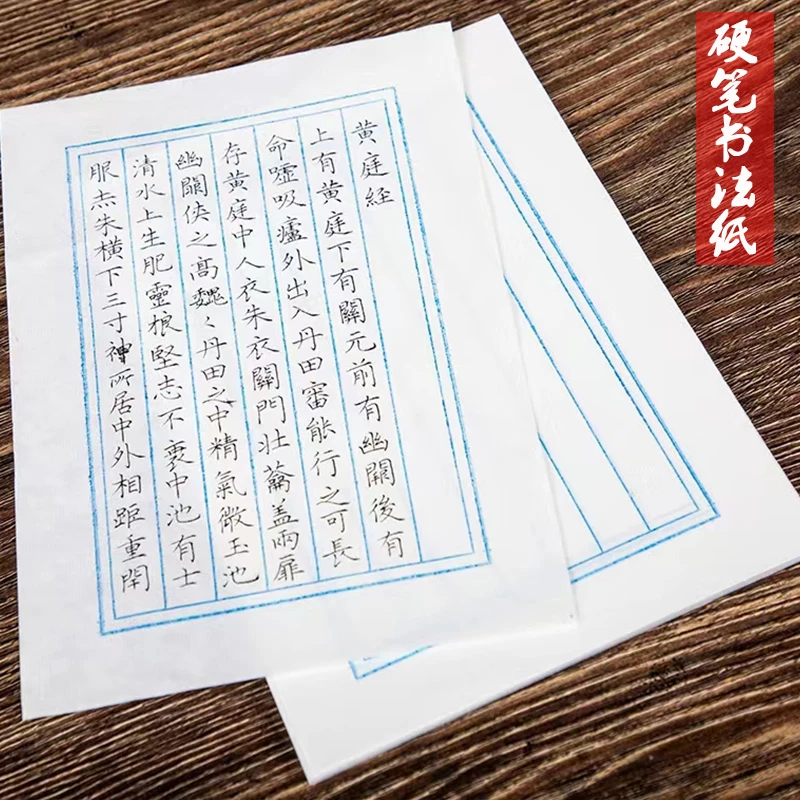 硬笔书法纸
黄庭经
上有黄庭下有關元前有幽闕後有
命噓吸廬外出入丹田審能行之可長
存黄庭中人衣朱衣關門壮蘥盖兩扉
幽闕侠之髙魏〻丹田之中精氣微玉池
清水上生肥靈根堅志不衰中池有士
服赤朱横下三寸神所居中外相距重閇